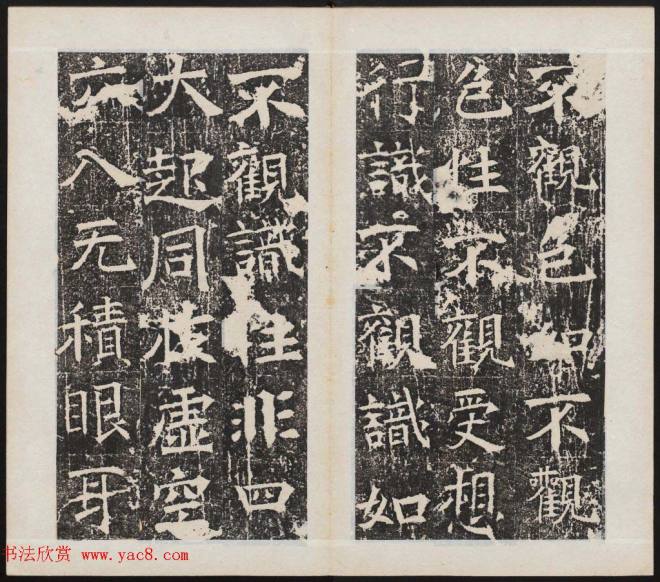 不觀色如不觀
色性不觀受想
行識不觀識如
不觀識性非四
大起同於虛空
六入无積眼耳
书法欣赏 www.yac8.com